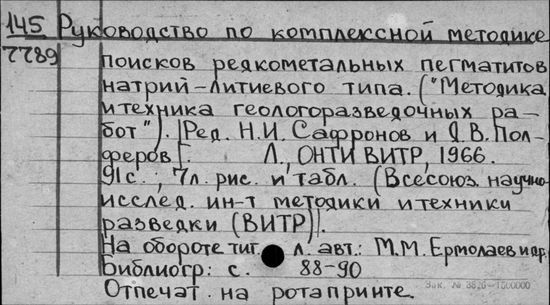 145 Руководство по комплексной методике
7789 поисков редкометальных пегматитов
натрий-литиевого типа. ("Методика
и техника геологоразведочных ра-
бот"). [Ред. Н.И. Сафронов и Д.В. Пол-
феров].  Л., ОНТИ ВИТР, 1966.
91 с.; 7 л. рис. и табл. (Всесоюз. научно-
исслед. ин-т методики и техники
разведки (ВИТР)).
На обороте тит. л. авт.: М.М. Ермолаев и др.
Библиогр: с. 88-90
Отпечат. на ротапринте.
Зак. № 3826-1500000